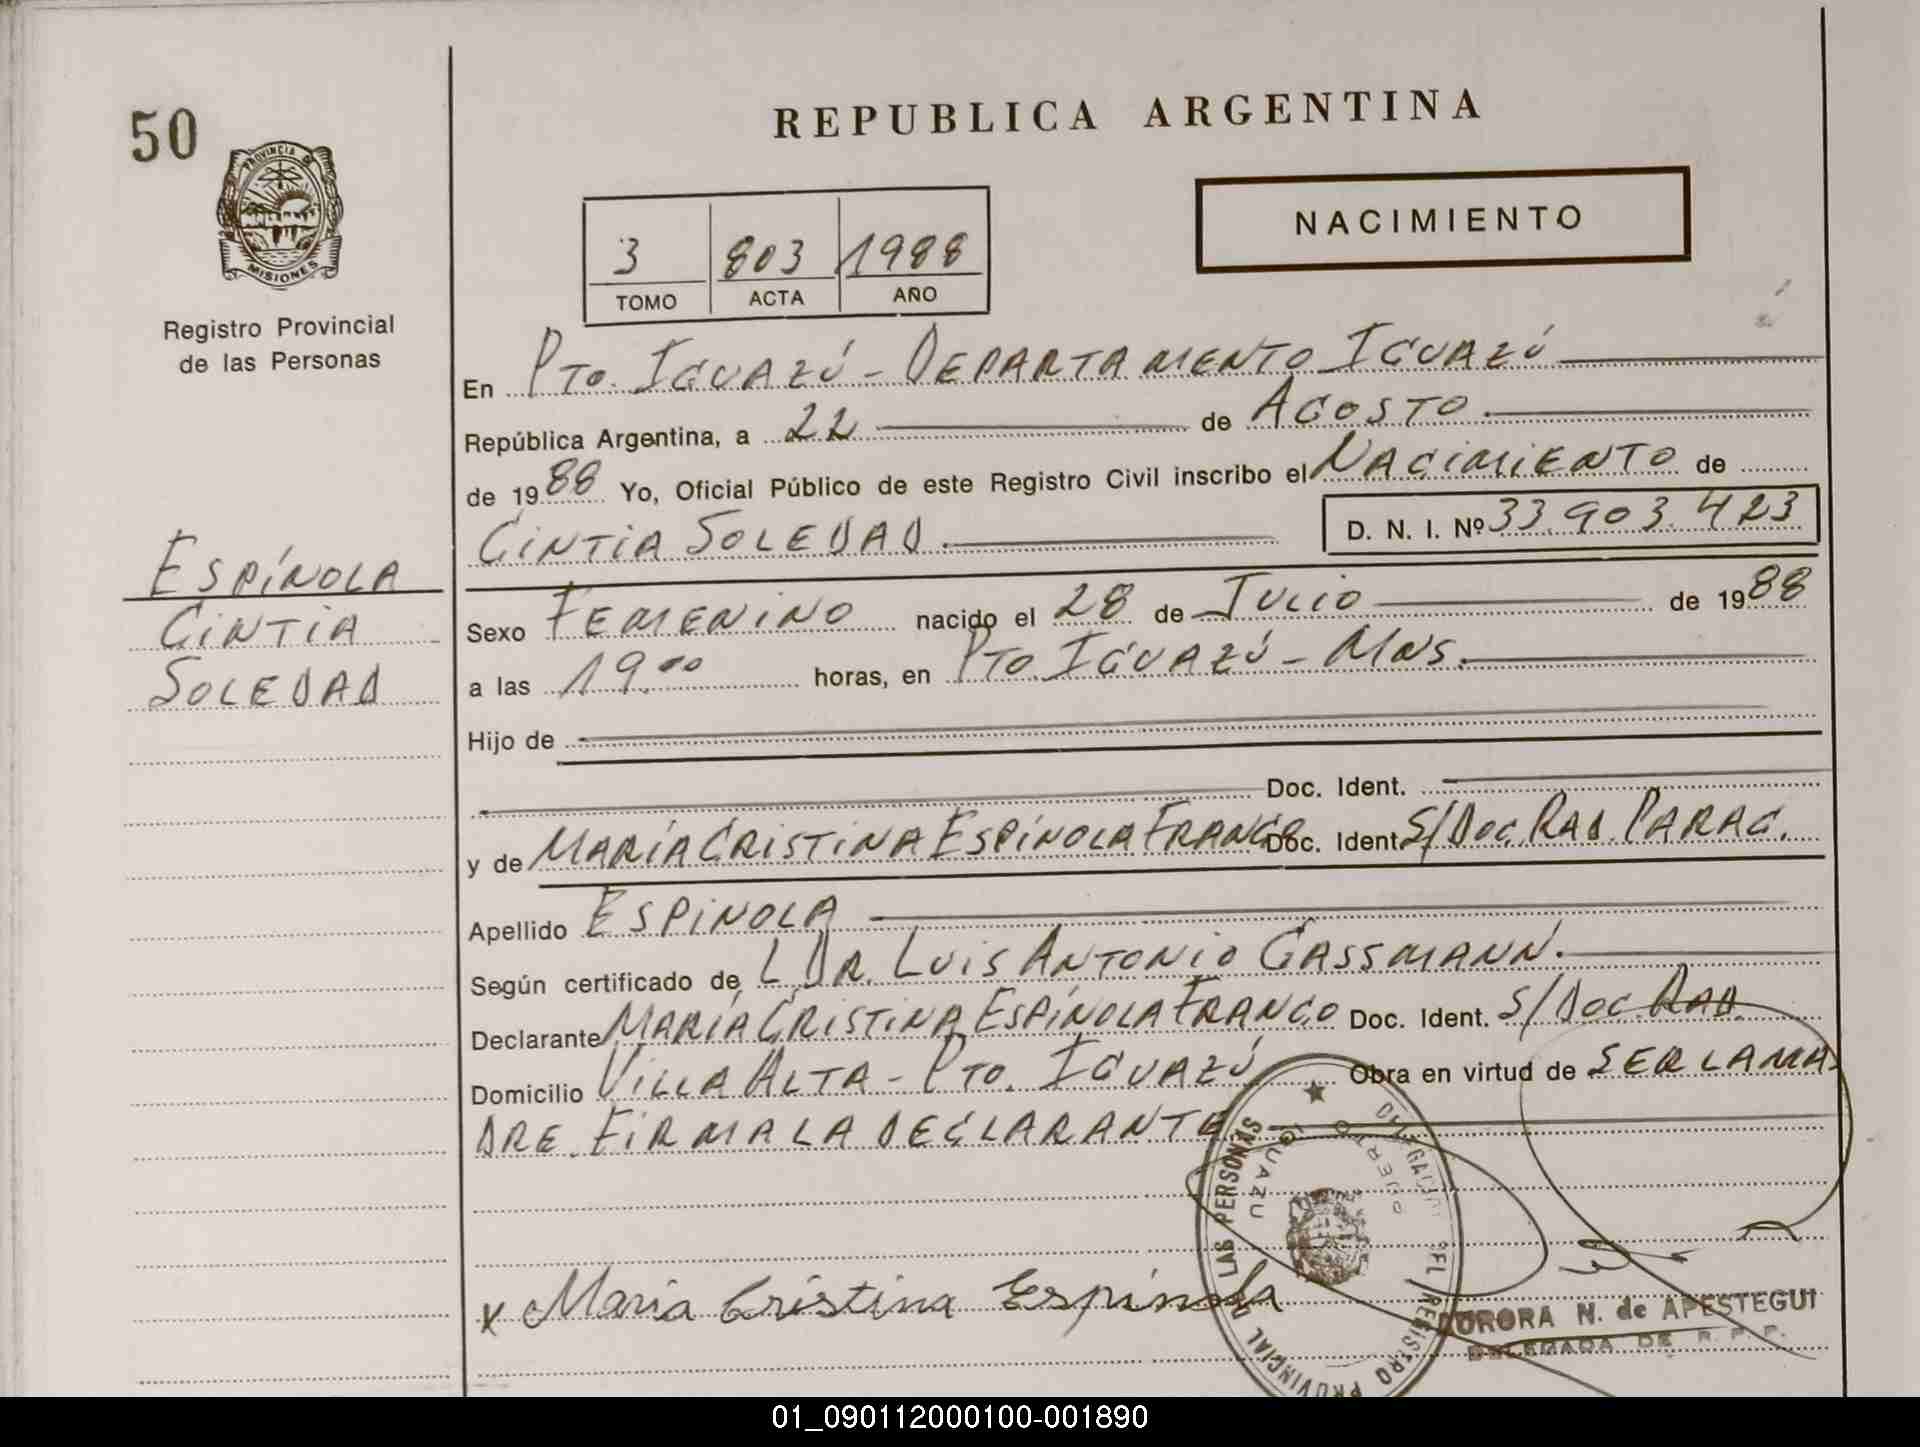 50
REPUBLICA ARGENTINA
PROVINCIA DE
MISIONES
Registro Provincial
de las Personas
NACIMIENTO
3 803 1988
TOMO ACTA AÑO
En PTO. IGUAZÚ - DEPARTAMENTO IGUAZÚ
República Argentina, a 22 de AGOSTO
de 1988 Yo, Oficial Público de este Registro Civil inscribo el NACIMIENTO de
CINTIA SOLEDAD D. N. I. Nº 33.903.423
ESPÍNOLA
CINTIA
SOLEDAD
Sexo FEMENINO nacido el 28 de JULIO de 1988
a las 19.00 horas, en PTO. IGUAZÚ - MNS.
Hijo de
Doc. Ident.
y de MARÍA CRISTINA ESPÍNOLA FRANCO Doc. Ident. S/DOC. RAD. PARAG.
Apellido ESPINOLA
Según certificado de L DR. LUIS ANTONIO GASSMANN.
Declarante MARÍA CRISTINA ESPÍNOLA FRANCO Doc. Ident. S/DOC. RAD.
Domicilio VILLA ALTA - PTO. IGUAZÚ Obra en virtud de SER LA MA
DRE. FIRMA LA DECLARANTE
DEL REGISTRO PROVINCIAL DE LAS PERSONAS
PUERTO IGUAZU
x Maria Cristina Espínola
AURORA N. de APESTEGUI
DELEGADA DE R. P. P.
01_090112000100-001890